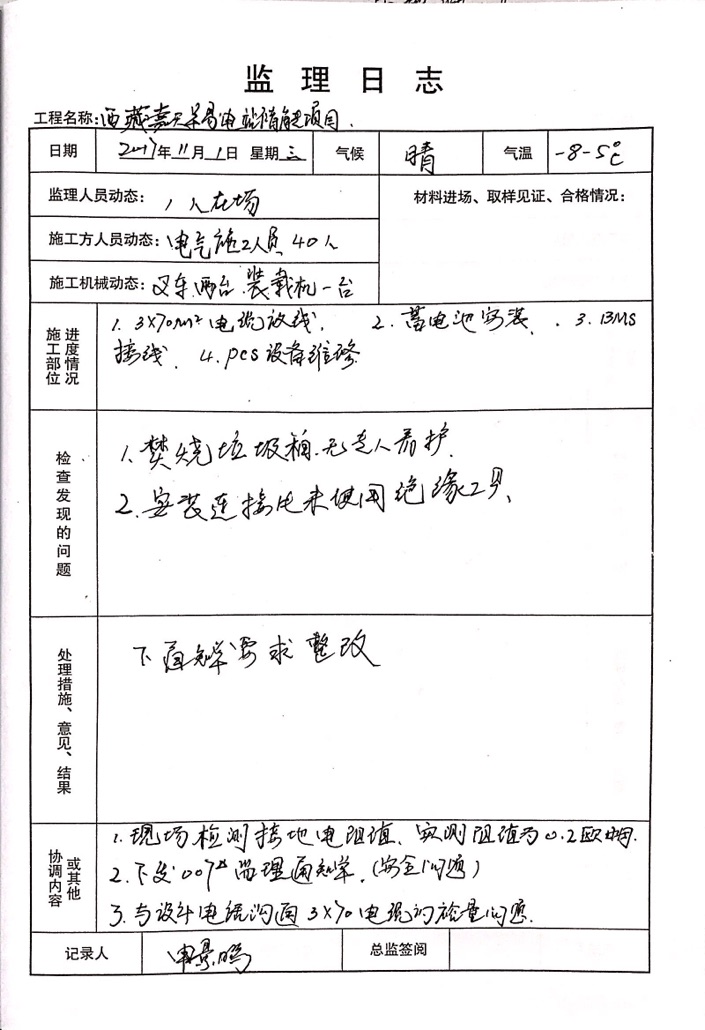 监理日志
工程名称:西藏嘉天羊易电站储能项目.
日期 2017年11月1日 星期三 气候 晴 气温 -8-5℃
监理人员动态: 1人在场 材料进场、取样见证、合格情况:
施工方人员动态: 电气施工人员 40人
施工机械动态: 叉车两台.装载机一台
施工部位 进度情况
1. 3×70m² 电缆放线. 2. 蓄电池安装. 3. BMS
接线. 4. pcs设备维修
检查发现的问题
1. 焚烧垃圾箱.无专人看护.
2. 安装连接片未使用绝缘工具.
处理措施、意见、结果
下通知单要求整改
协调内容 或其他
1. 现场检测接地电阻值、实测阻值为0.2欧姆.
2. 下发007#监理通知单.(安全问题)
3. 与设计电缆沟通3×70电缆的 量问题.
记录人 申景鹏 总监签阅